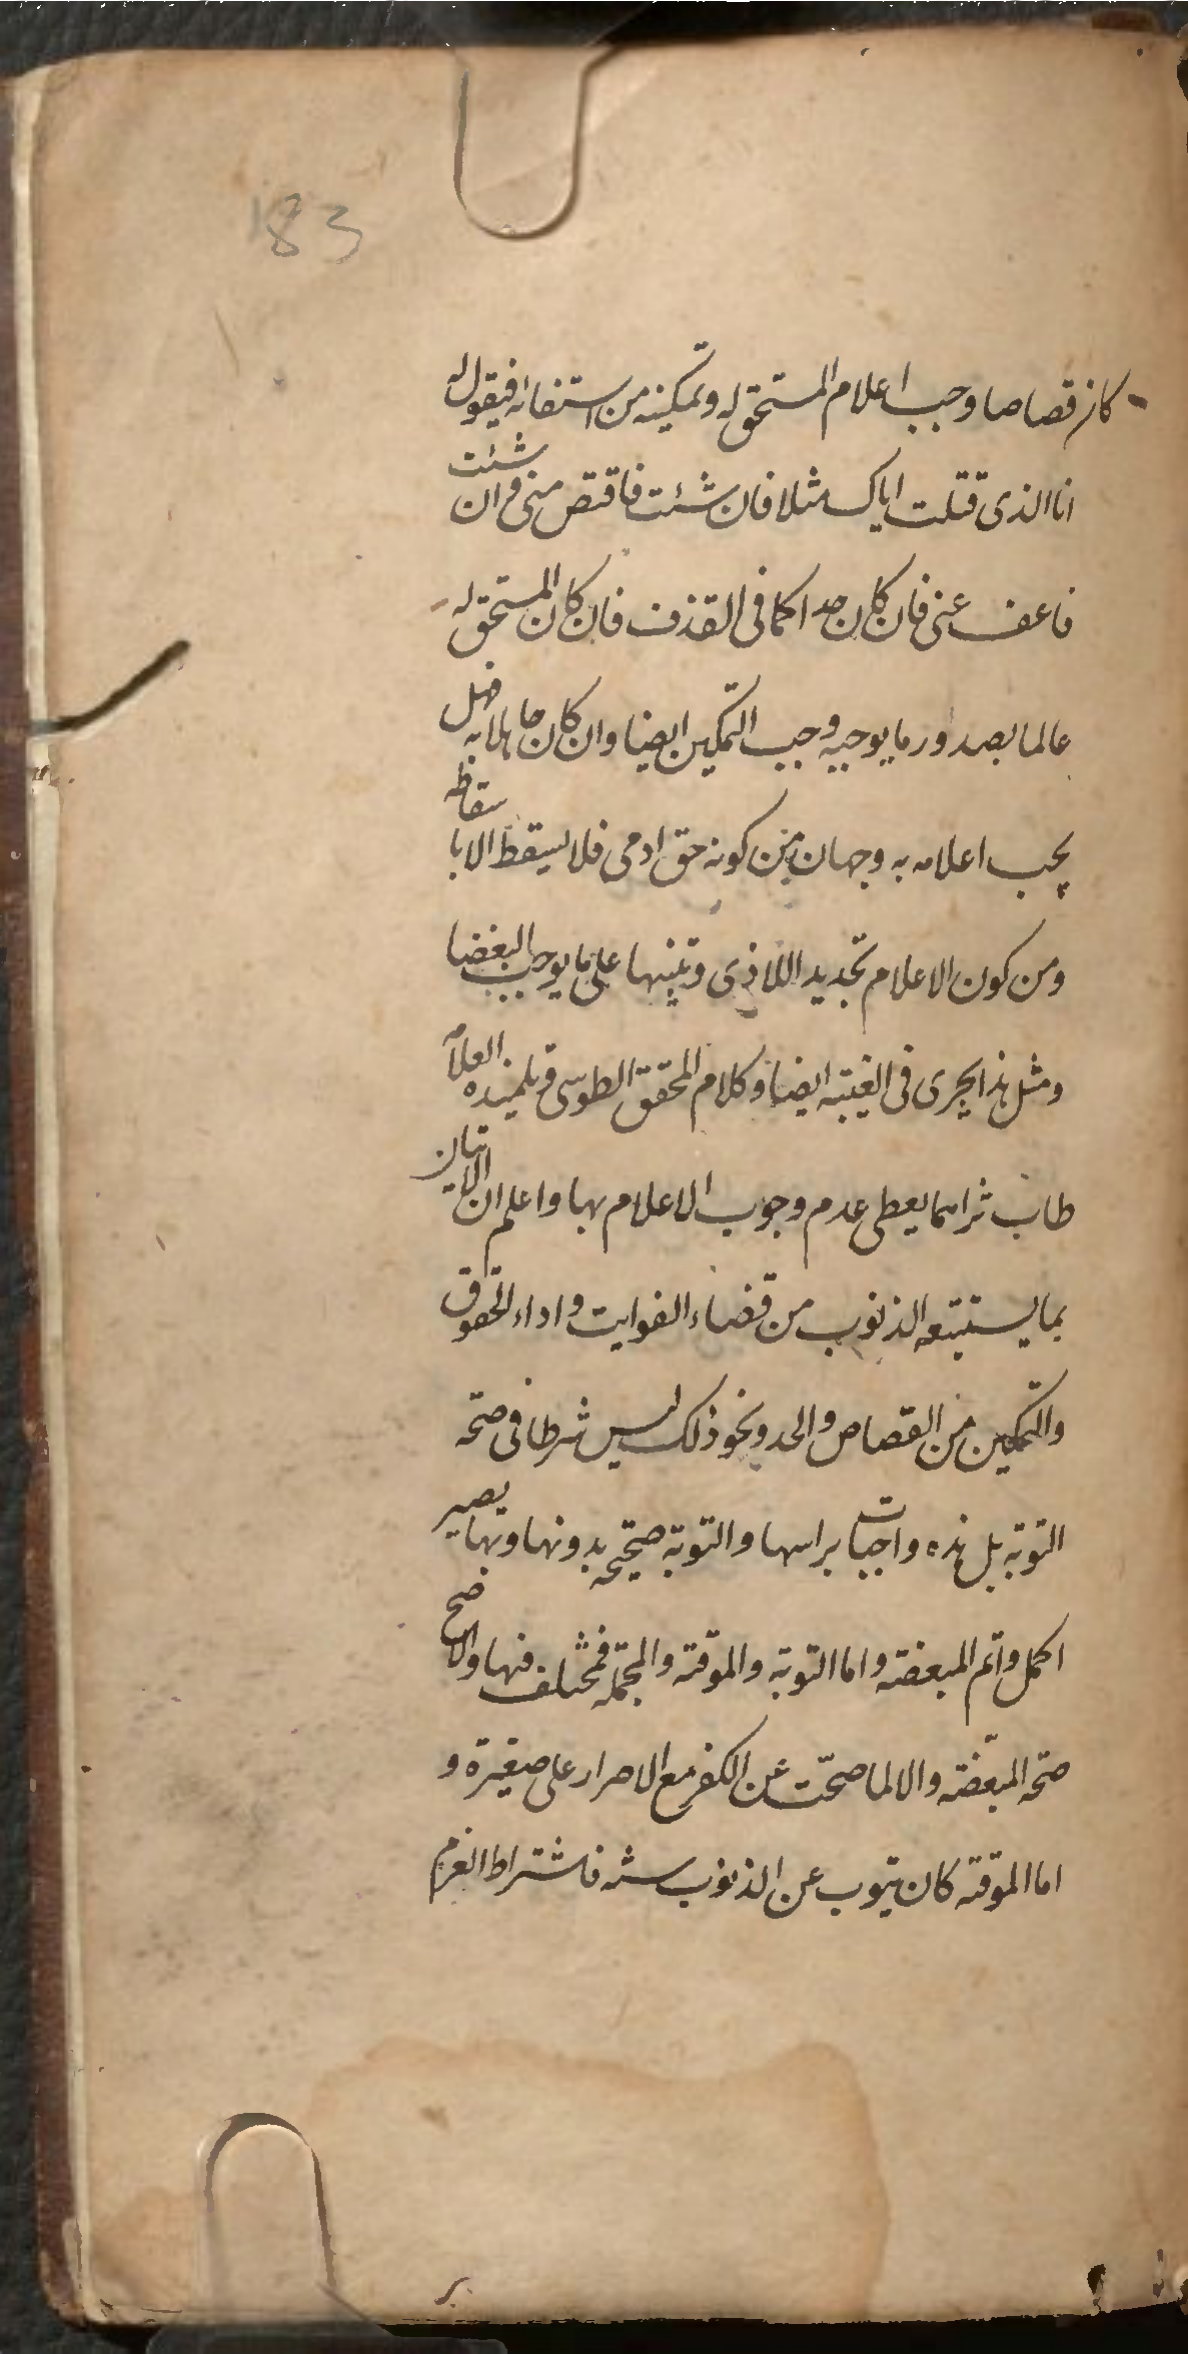 183
كان قصاصا وجب اعلام المستحق له وتمكينه من استيفائه فيقول له
انا الذى قتلت اباك مثلا فان شئت فاقتص منى وان شئت
فاعف عنى فان كان حدا كما فى القذف فان كان المستحق له
عالما بصدور ما يوجبه وجب التمكين ايضا وان كان جاهلا به فهل
يجب اعلامه به وجهان من كونه حق ادمى فلا يسقط الا باسقاطه
ومن كون الاعلام تجديد اللاذى وتنبيها على ما يوجب البغضا
ومثل هذا يجرى فى الغيبة ايضا وكلام المحقق الطوسى وتلميذه العلامه
طاب ثراهما يعطى عدم وجوب الاعلام بها واعلم ان الاتيان
بما يستتبعه الذنوب من قضاء الفوايت واداء الحقوق
والتمكين من القصاص والحد ونحو ذلك ليس شرطا فى صحة
التوبة بل هذه واجبات براسها والتوبة صحيحه بدونها وبها يصير
اكمل واتم المبعضة واما التوبة والموقتة والمجملة فمختلف فيها والاصح
صحة المبعّضة والا لما صحّت عن الكفر مع الاصرار على صغيرة و
اما الموقتة كان يتوب عن الذنوب سنه فاشتراط العزم